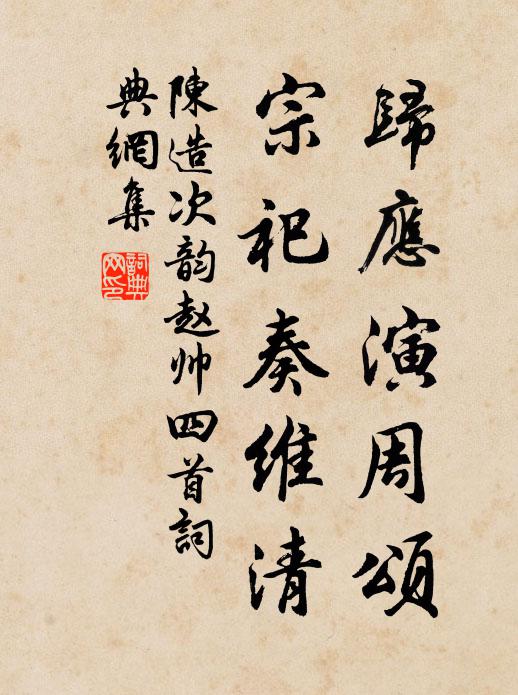 歸應演周頌
宗祀奏維清
陳造次韵赵帅四首詞
典網集
詞典
网印